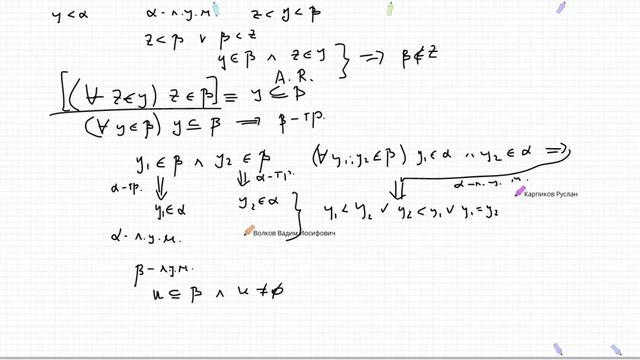 y < α α – л.у.м. z < y < β
z < β ∨ β < z
y ∈ β ∧ z ∈ y } ⟹ β ∉ z
A.R.
[(∀ z ∈ y) z ∈ β] ≡ y ⊆ β
(∀ y ∈ β) y ⊆ β ⟹ β – тр.
y₁ ∈ β ∧ y₂ ∈ β (∀ y₁, y₂ ∈ β) y₁ ∈ α ∧ y₂ ∈ α ⟹
α – тр. ⇓ ⇓ α – тр. ⇓ α – л.у.м.
y₁ ∈ α y₂ ∈ α } y₁ < y₂ ∨ y₂ < y₁ ∨ y₁ = y₂
Карпиков Руслан
α – л.у.м.
Волков Вадим Иосифович
β – л.у.м.
u ⊆ β ∧ u ≠ ∅